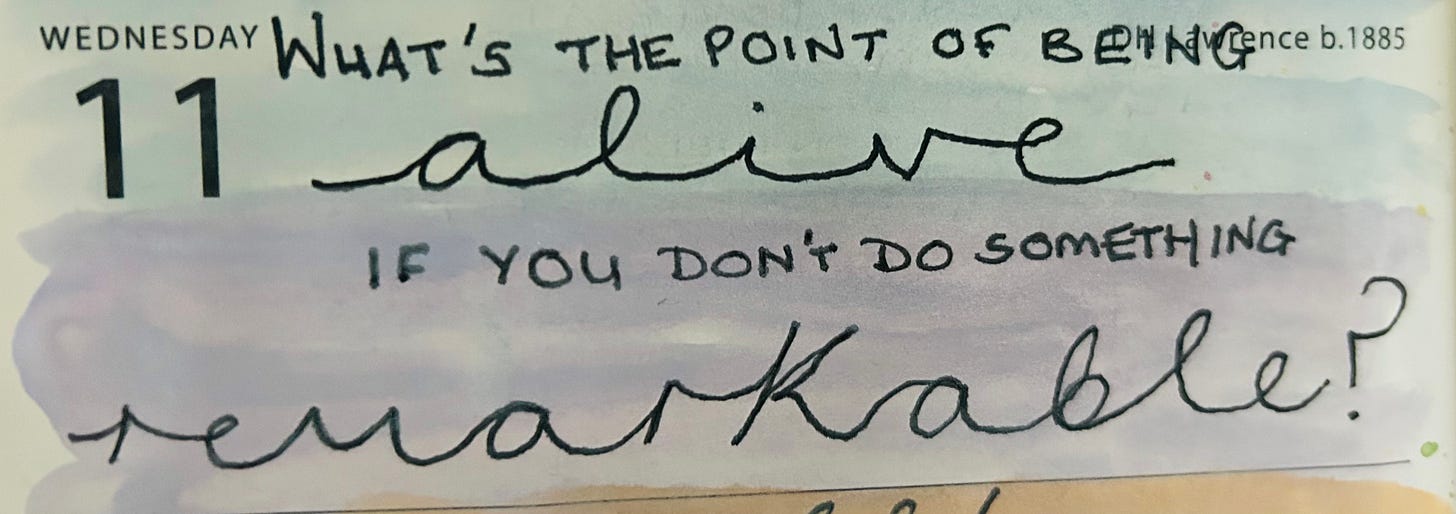 WEDNESDAY WHAT'S THE POINT OF BEING
DH Lawrence b.1885
11 alive
IF YOU DON'T DO SOMETHING
remarkable?